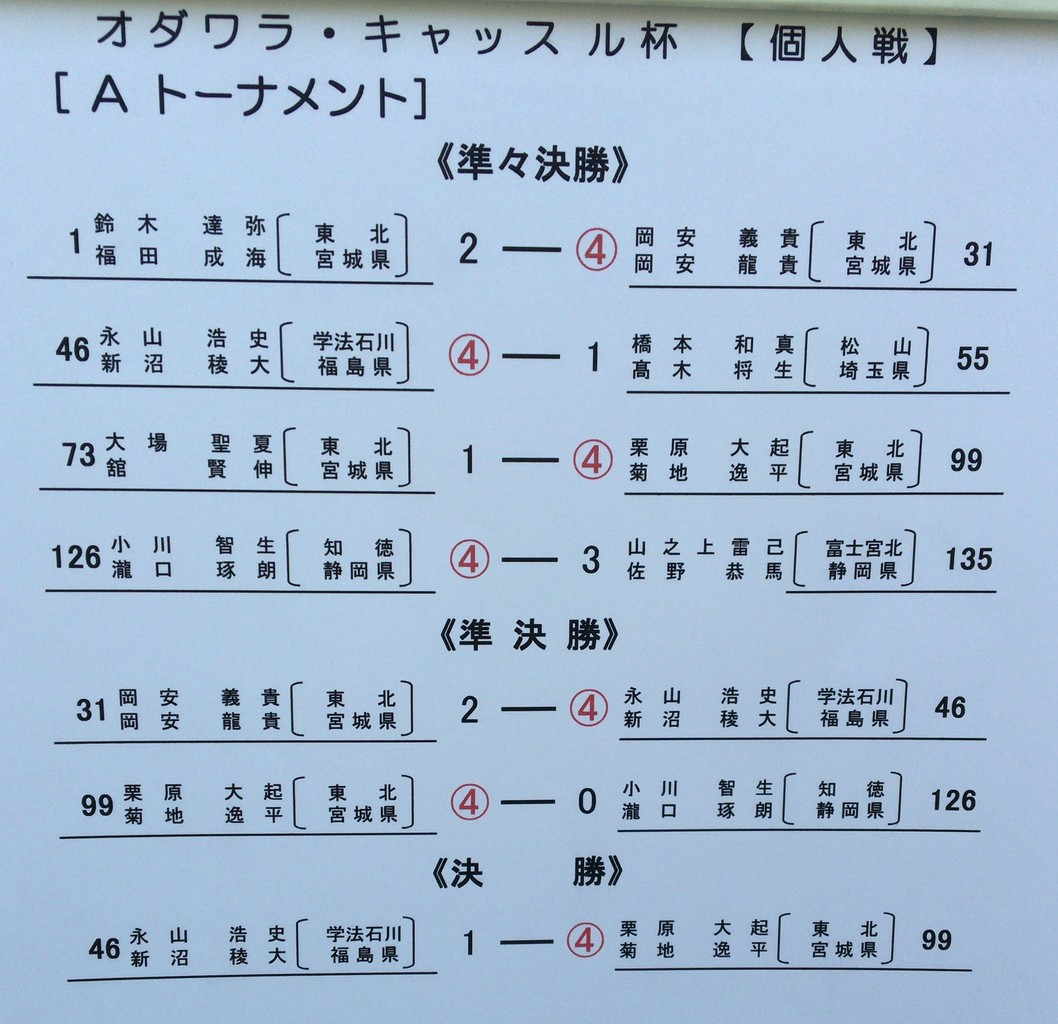 オダワラ・キャッスル杯 【個人戦】
[Aトーナメント]
《準々決勝》
1 鈴木 達弥 福田 成海 [東北 宮城県] 2 — ④ 岡安 義貴 岡安 龍貴 [東北 宮城県] 31
46 永山 浩史 新沼 稜大 [学法石川 福島県] ④ — 1 橋本 和真 髙木 将生 [松山 埼玉県] 55
73 大場 聖夏 舘 賢伸 [東北 宮城県] 1 — ④ 栗原 大起 菊地 逸平 [東北 宮城県] 99
126 小川 智生 瀧口 琢朗 [知徳 静岡県] ④ — 3 山之上雷己 佐野 恭馬 [富士宮北 静岡県] 135
《準決勝》
31 岡安 義貴 岡安 龍貴 [東北 宮城県] 2 — ④ 永山 浩史 新沼 稜大 [学法石川 福島県] 46
99 栗原 大起 菊地 逸平 [東北 宮城県] ④ — 0 小川 智生 瀧口 琢朗 [知徳 静岡県] 126
《決 勝》
46 永山 浩史 新沼 稜大 [学法石川 福島県] 1 — ④ 栗原 大起 菊地 逸平 [東北 宮城県] 99